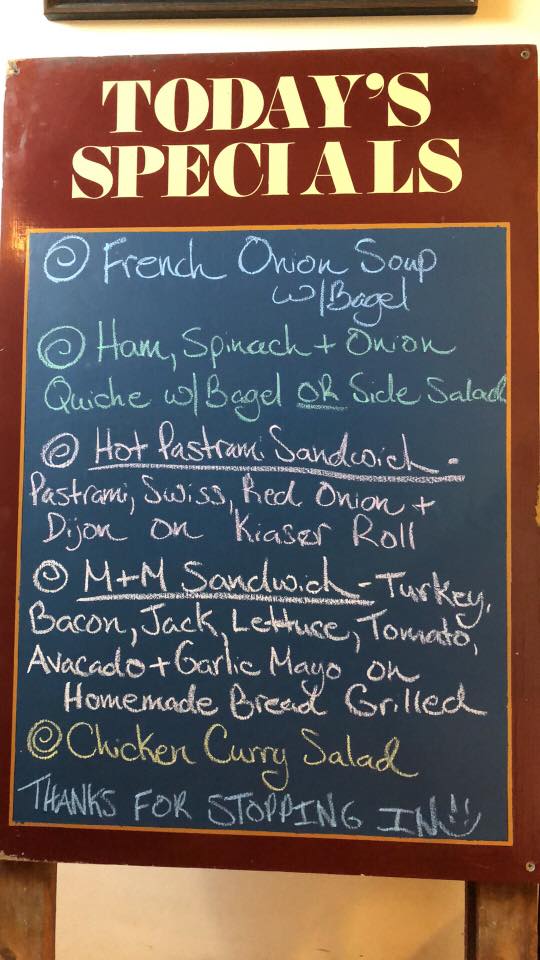 TODAY'S
SPECIALS
French Onion Soup
w/Bagel
Ham, Spinach + Onion
Quiche w/Bagel OR Side Salad
Hot Pastrami Sandwich -
Pastrami, Swiss, Red Onion +
Dijon on Kiaser Roll
M+M Sandwich - Turkey,
Bacon, Jack, Lettuce, Tomato,
Avacado + Garlic Mayo on
Homemade Bread Grilled
Chicken Curry Salad
THANKS FOR STOPPING IN